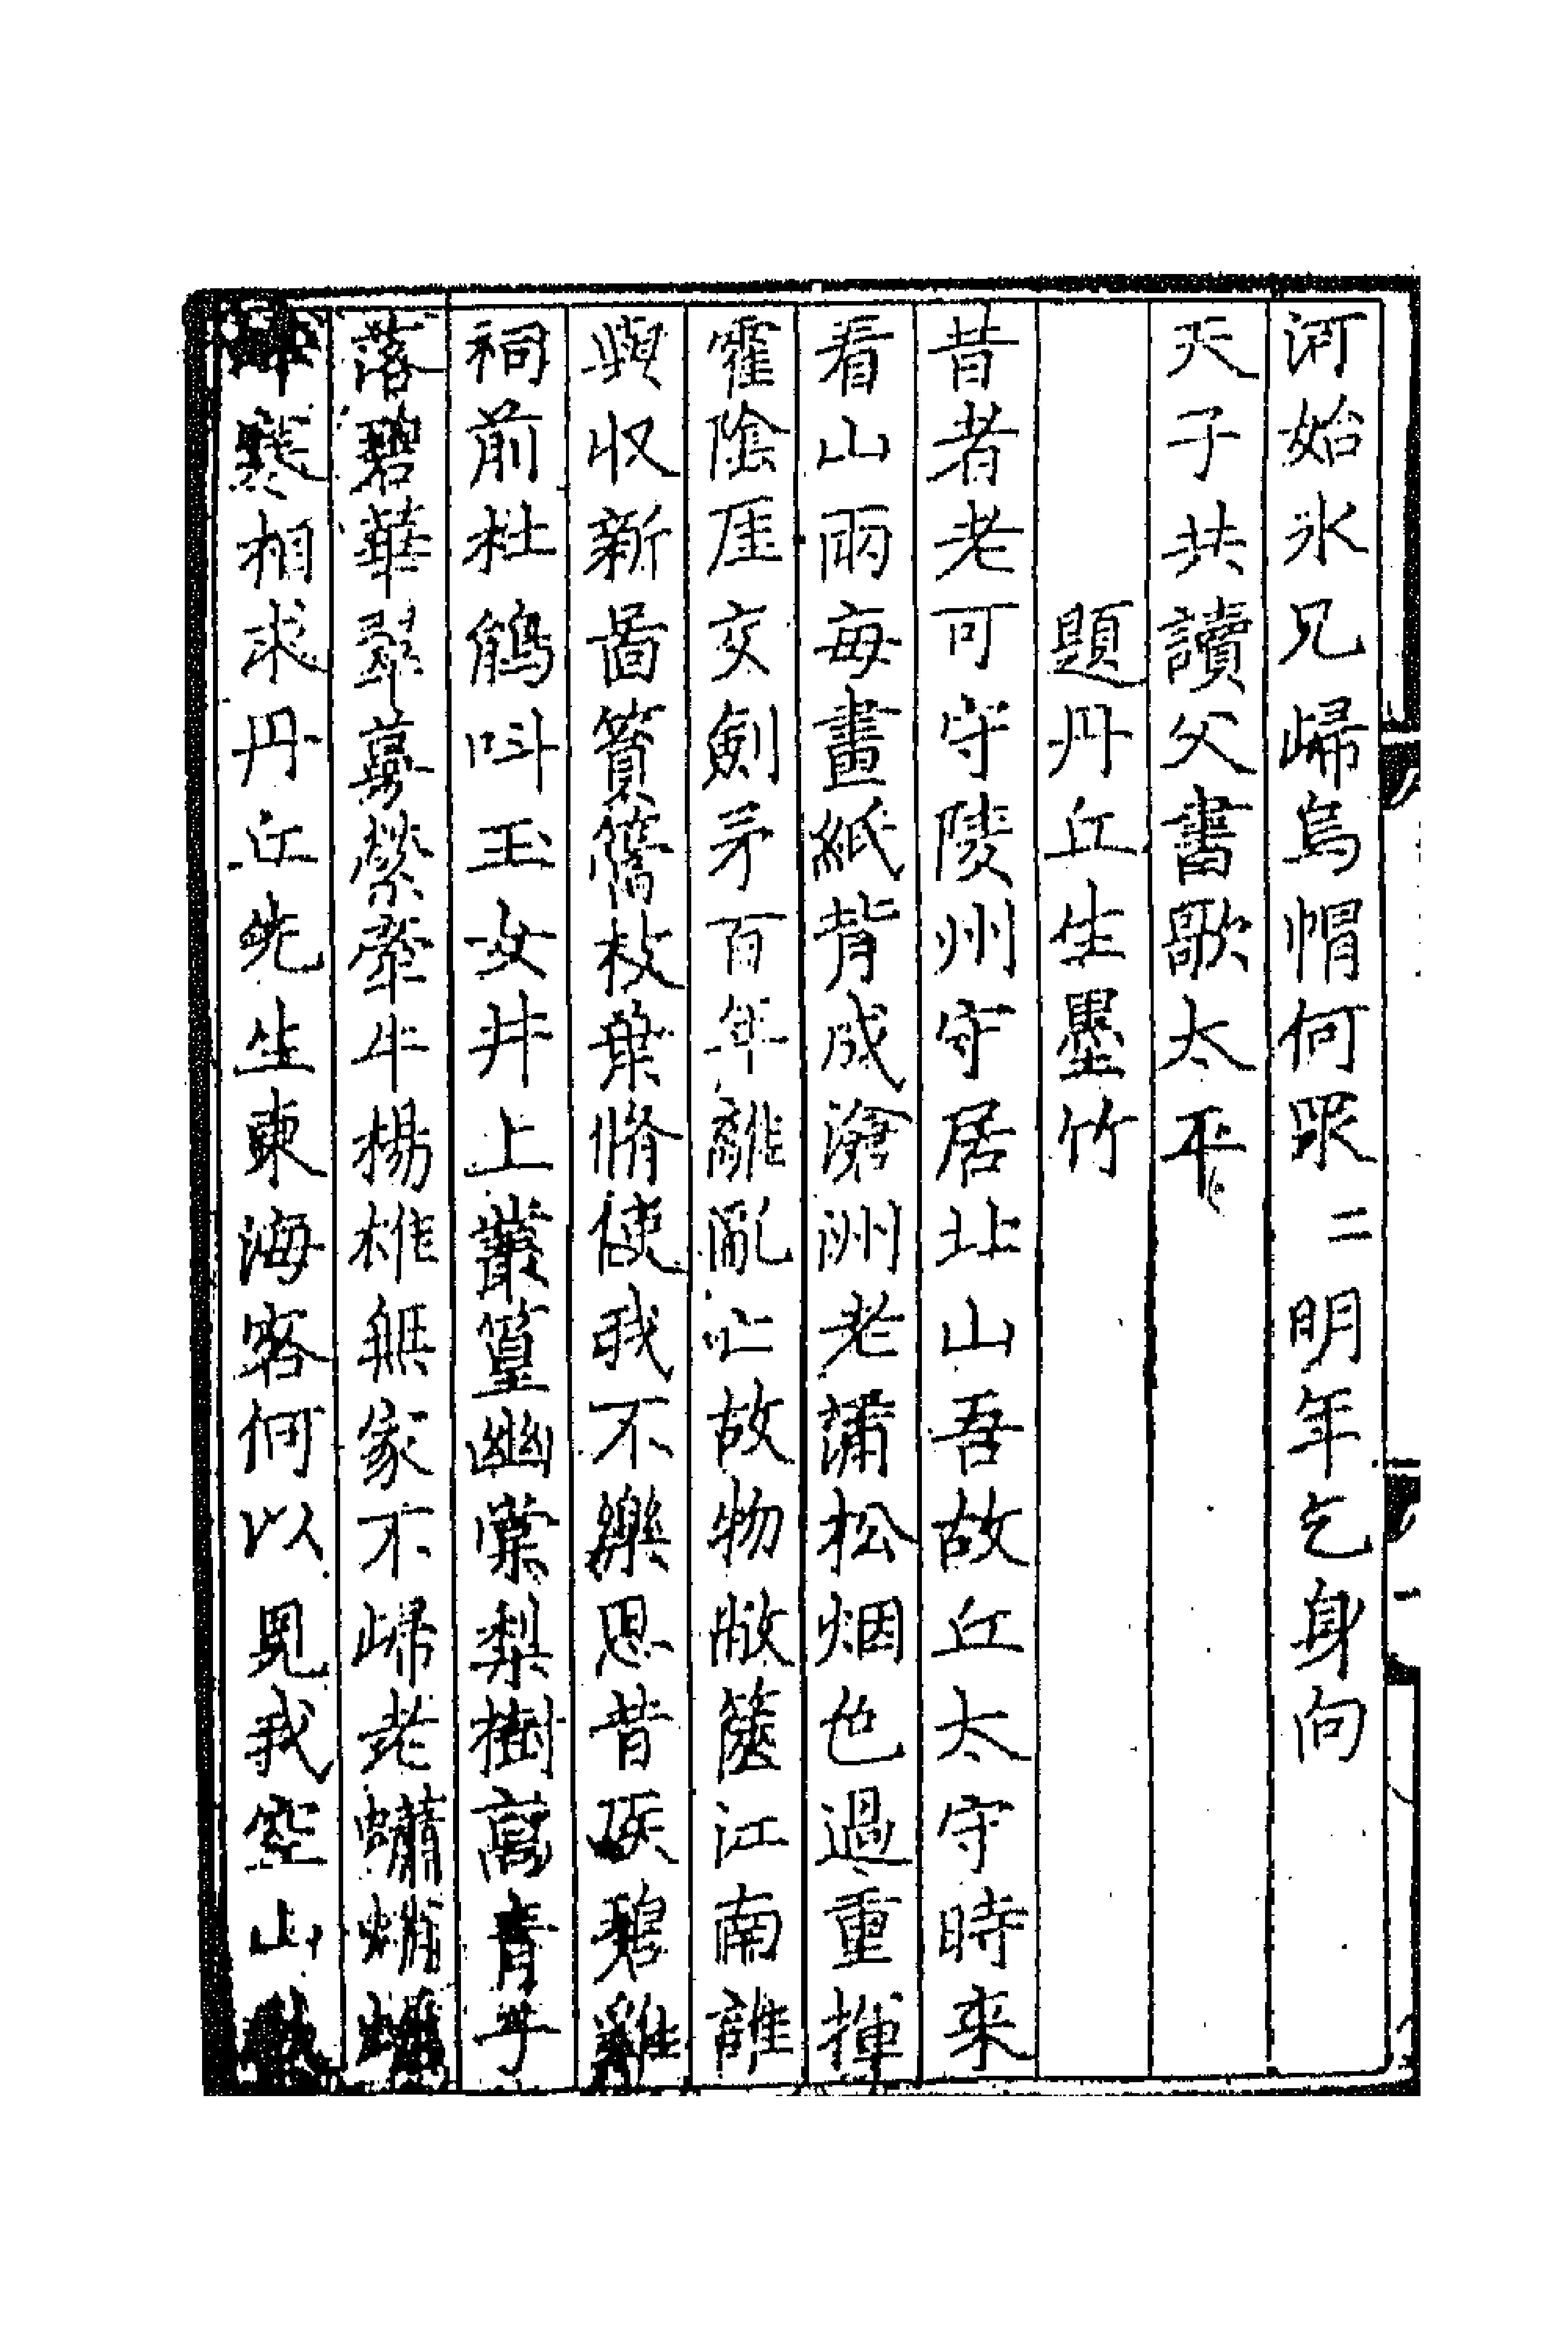 河始氷兄歸烏帽何眾二明年乞身向
天子共讀父書歌太平
題丹丘生墨竹
昔者老可守陵州守居北山吾故丘太守時來
看山雨每畫紙背成滄洲老蒲松烟色過重揮
霍陰厓交劍矛百年離亂亡故物敝篋江南誰
與収新啚篔簹枝葉脩使我不樂思昔矦碧雞
祠前杜鵑呌玉女井上叢篁幽棠梨樹髙青子
落碧華翠蔓縈牽牛楊雄無家不歸老蠨蛸
寒相求丹丘先生東海客何以見我空山